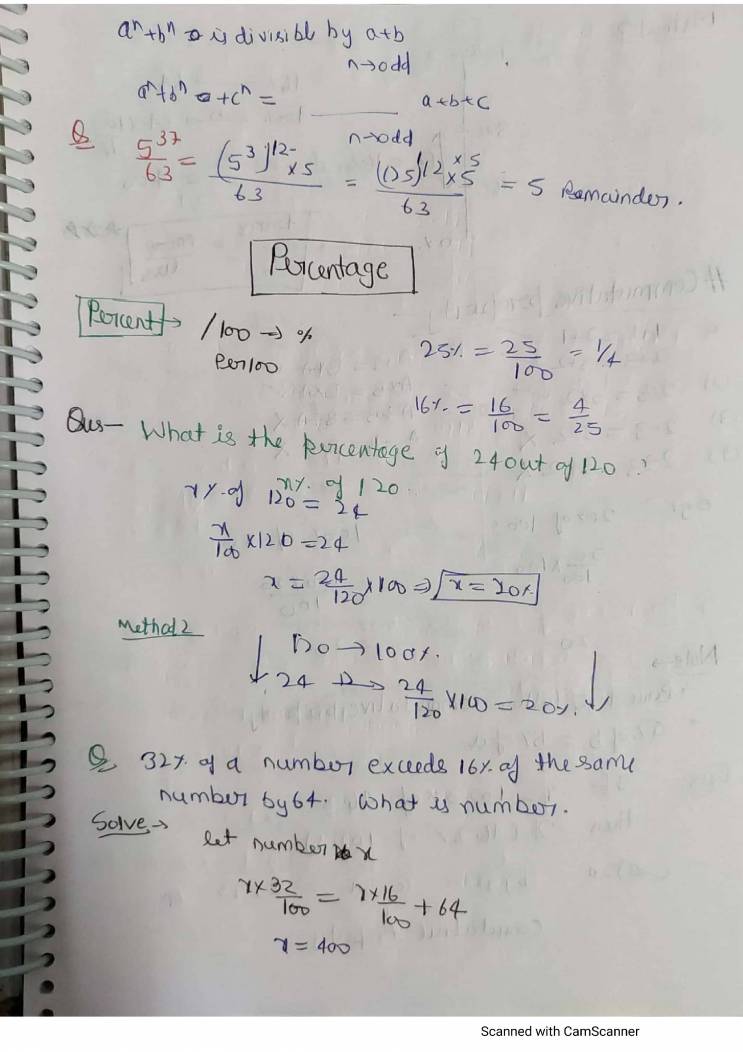 aⁿ+bⁿ is divisible by a+b
n→odd
aⁿ+bⁿ +cⁿ = ______ a+b+c
n→odd
Q 5³⁷/63 = (5³)¹² ×5/63 = (125)¹² ×5 ×5/63 = 5 Remainder.
Percentage
Percent → /100 → %
Per100
25% = 25/100 = 1/4
16% = 16/100 = 4/25
Qus— What is the percentage of 24 out of 120 ?
x% of 120.
x% of 120 = 24
x/100 ×120 = 24
x = 24/120 ×100 ⇒ x = 20%
Method 2
↓ 120 → 100%. ↓
24 → 24/120 ×100 = 20%.
Q 32% of a number exceeds 16% of the same
number by 64. What is number.
Solve →
let number x
x × 32/100 = x × 16/100 + 64
x = 400
Scanned with CamScanner